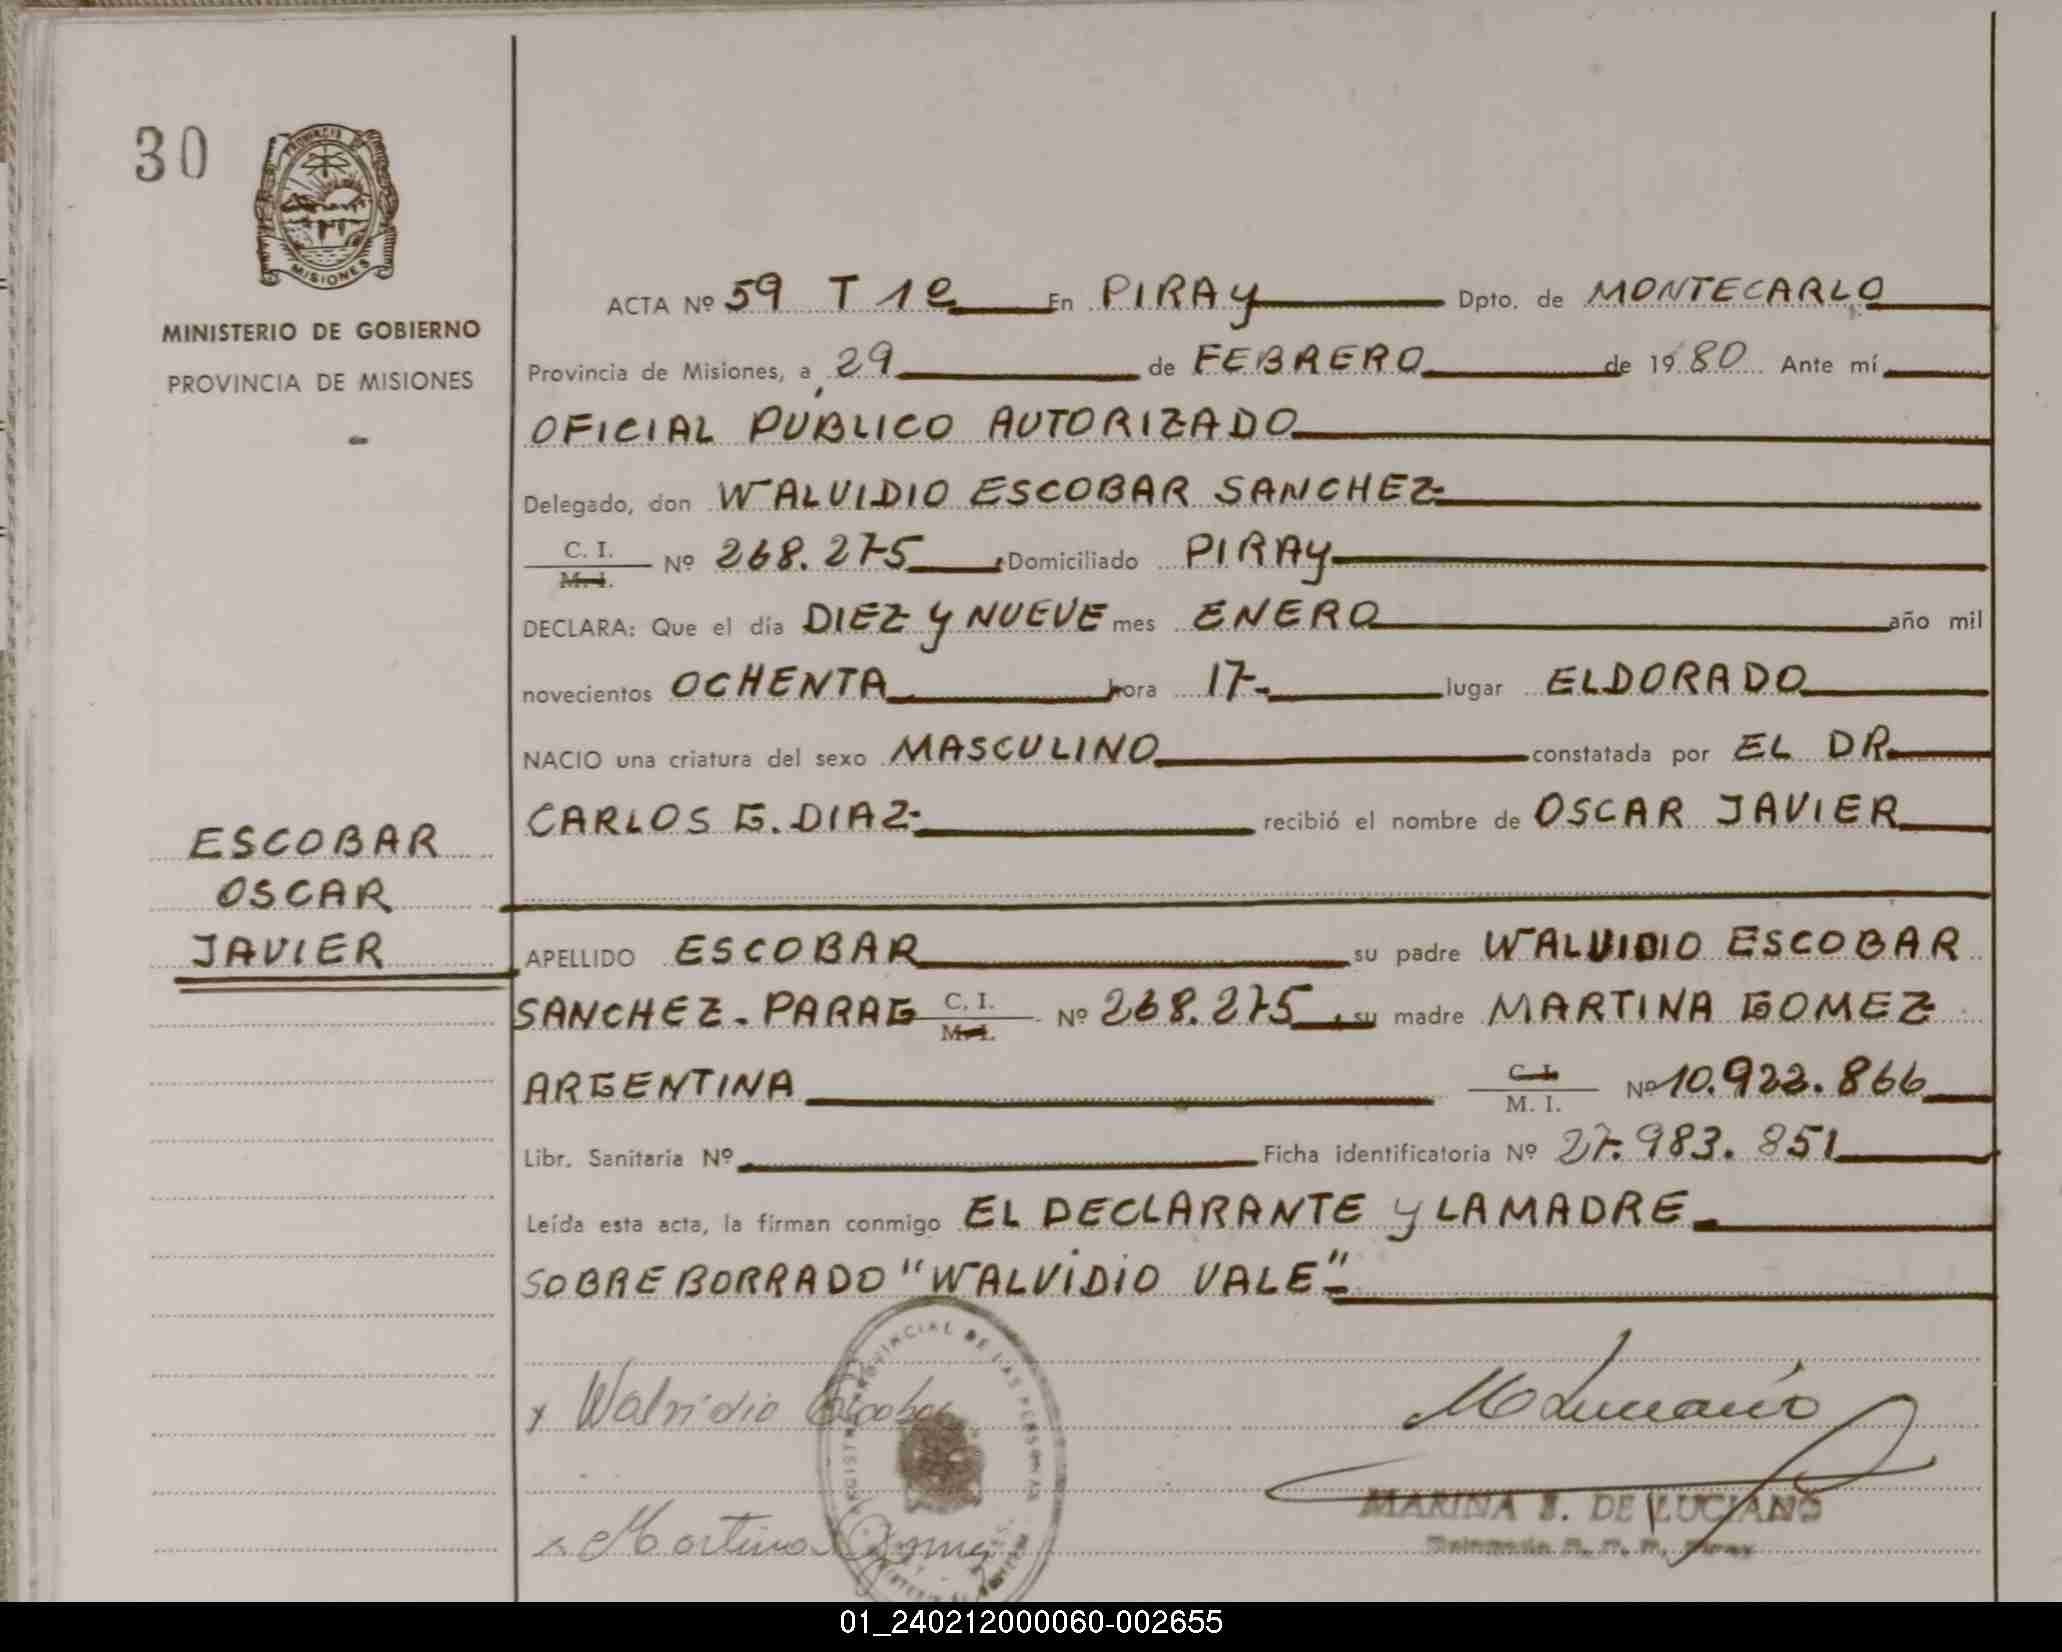 30
PROVINCIA DE
MISIONES
MINISTERIO DE GOBIERNO
PROVINCIA DE MISIONES
ESCOBAR
OSCAR
JAVIER
ACTA Nº 59 T 1º En PIRAY Dpto. de MONTECARLO
Provincia de Misiones, a 29 de FEBRERO de 1980 Ante mí
OFICIAL PUBLICO AUTORIZADO
Delegado, don WALVIDIO ESCOBAR SANCHEZ
C. I.
M. I. Nº 268.275 Domiciliado PIRAY
DECLARA: Que el día DIEZ Y NUEVE mes ENERO año mil
novecientos OCHENTA hora 17- lugar ELDORADO
NACIO una criatura del sexo MASCULINO constatada por EL DR
CARLOS G. DIAZ recibió el nombre de OSCAR JAVIER
APELLIDO ESCOBAR su padre WALVIDIO ESCOBAR
SANCHEZ - PARAG C. I. M. I. Nº 268.275, su madre MARTINA GOMEZ
ARGENTINA C. I. M. I. Nº 10.922.866
Libr. Sanitaria Nº Ficha identificatoria Nº 27.983.851
Leída esta acta, la firman conmigo EL DECLARANTE Y LA MADRE
SOBRE BORRADO "WALVIDIO VALE"
x Walvidio Escobar
M Luciano
PROVINCIAL DE LAS PERSONAS
MARINA DE LUCIANO
x Martina Gomez
01_240212000060-002655